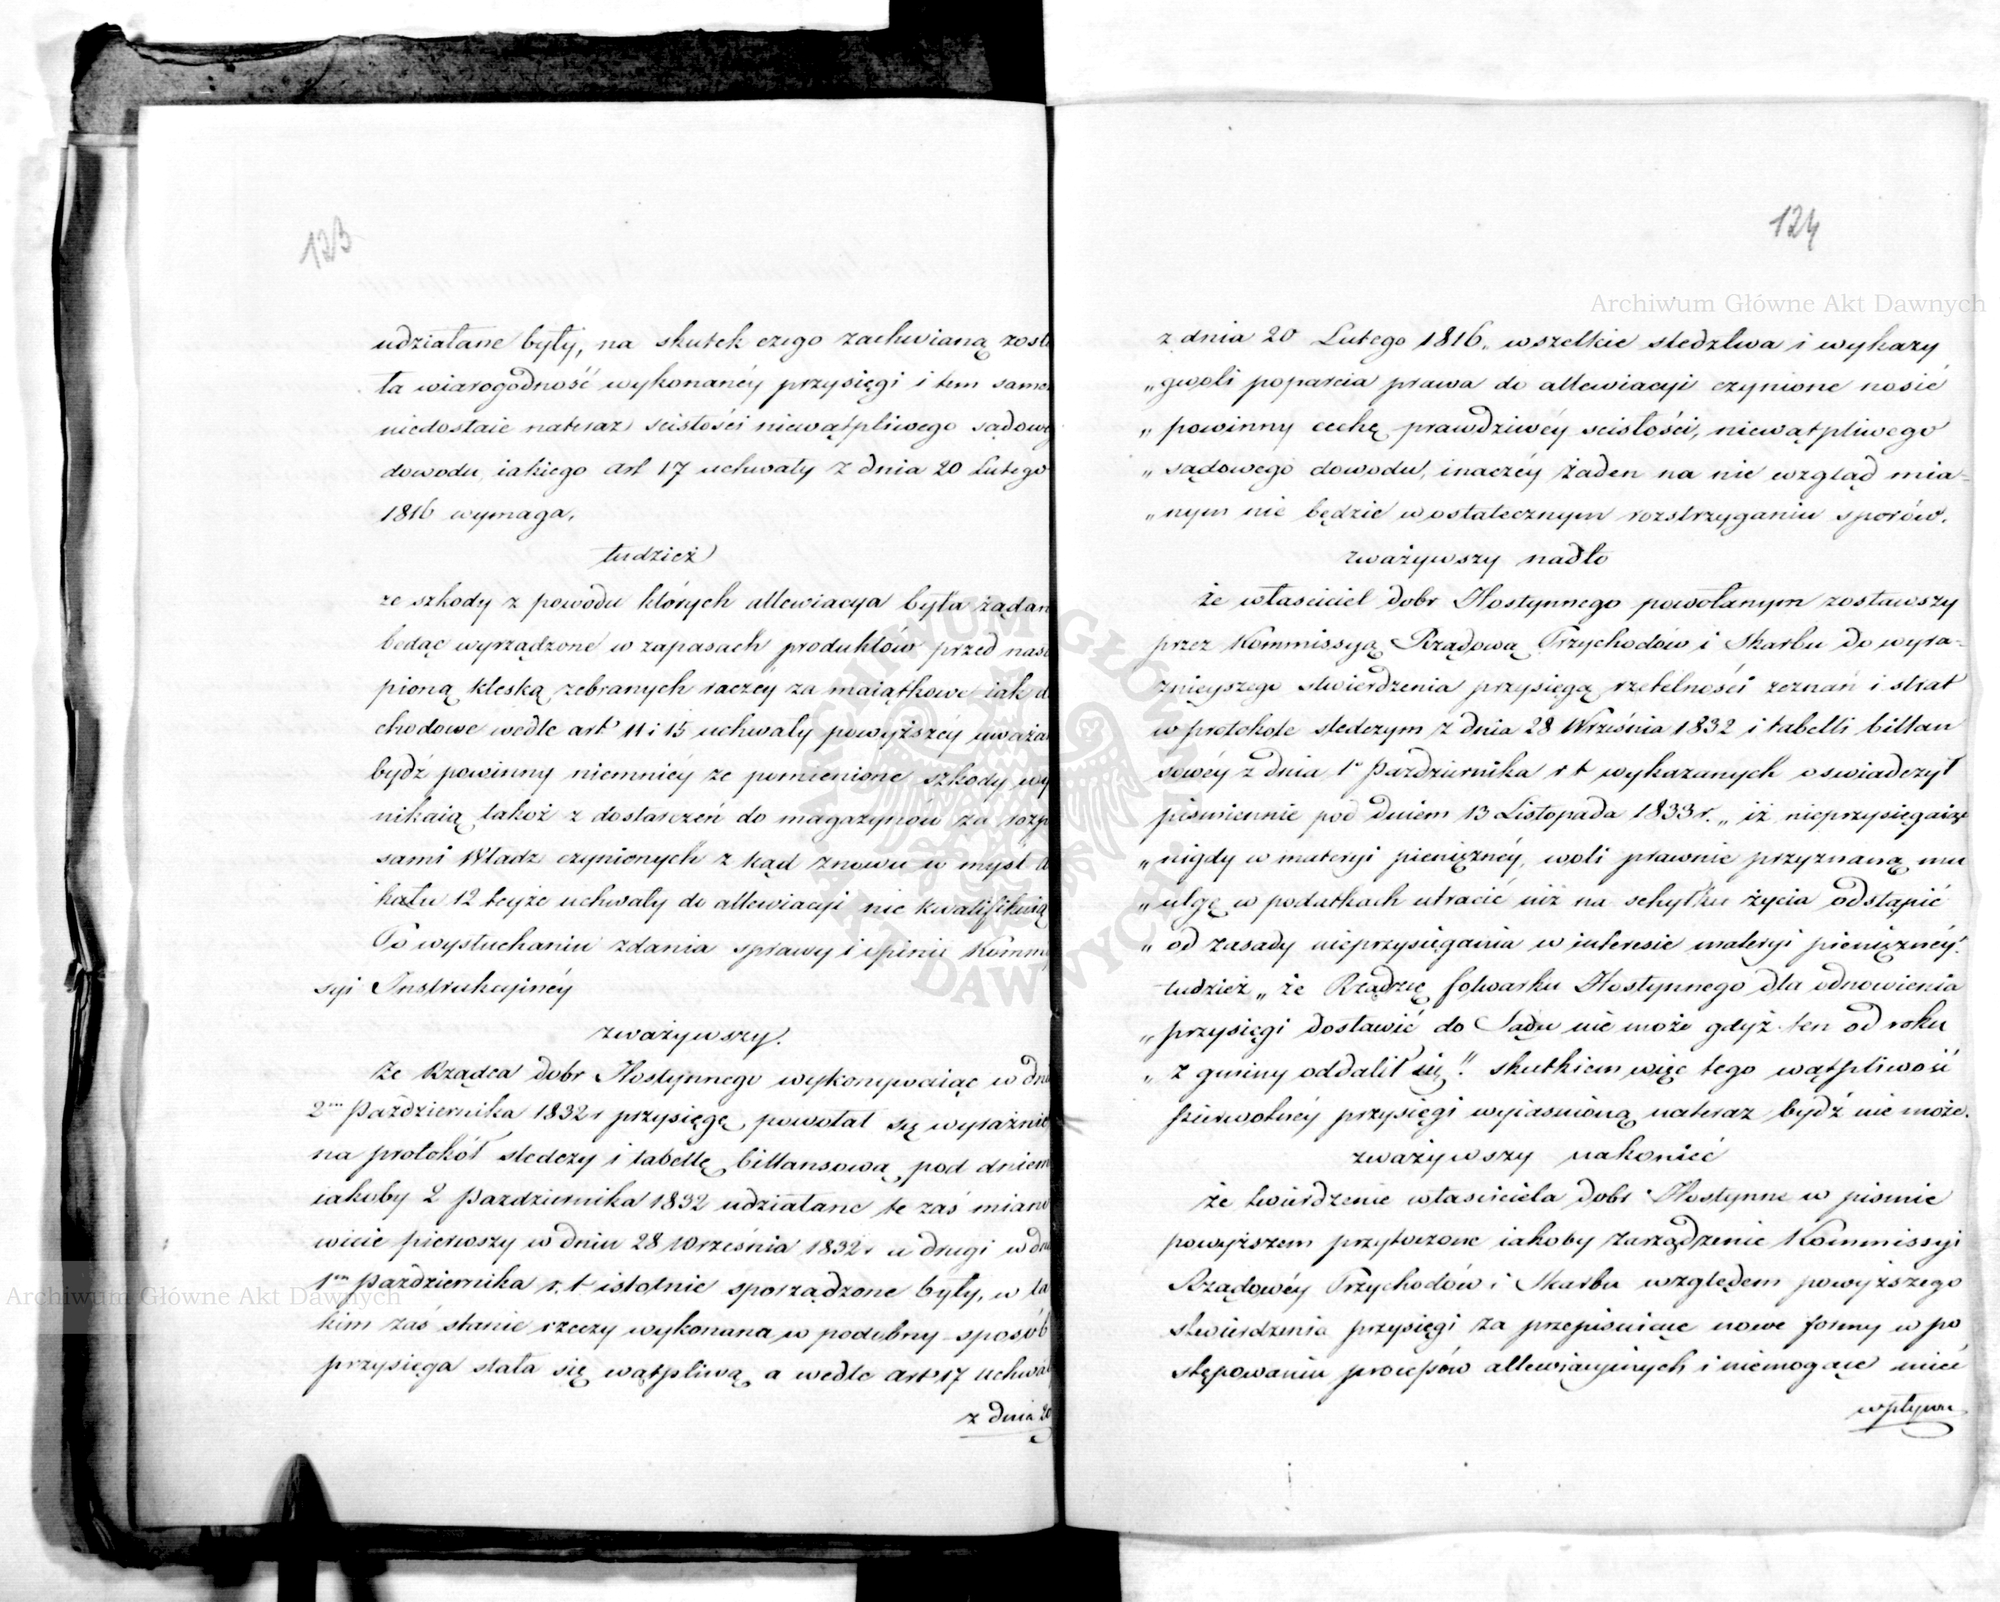 123
udziałane były, na skutek czego zachwianą zosta
ła wiarogodność wykonanéy przysięgi i tem samem
niedostaie nateraz scisłości niewątpliwego sądowe
dowodu, iakiego art 17 uchwały z dnia 20 Lutego
1816 wymaga,
tudzież
ze szkody z powodu których allewiacya była żądan
bedąc wyrządzone w zapasach produktów przed nas
pioną kleską zebranych raczey za maiątkowe iak d
chodowe wedle art 11 i 15 uchwały powyższéy uważa
bydź powinny niemniéy ze pomienione szkody wy
nikaią takoż z dostarczeń do magazynów za rozp
sami Władz czynionych z kąd znowu w myśl a
kułu 12 teyże uchwały do allewiacyi nie kwalifikuią
Po wysłuchaniu zdania sprawy i opinii Kommi
syi Instrukcyinéy
zważywszy.
że Rządca dobr Hostynnego wykonywaiąc w dni
2m Października 1832 r przysięgę, powołał się wyraźnie
na protokół sledczy i tabellę billansową pod dniem
iakoby 2 Pazdziernika 1832 udziałane te zaś miano
wicie pierwszy w dniu 28 Września 1832 r a drugi w dni
1m Pazdziernika r. t istotnie sporządzone były, w ta
kim zaś stanie rzeczy wykonana w podobny sposób
przysięga stała się wątpliwą a wedle art 17 uchwał
z dnia 20
124
z dnia 20 Lutego 1816 „ wszelkie sledztwa i wykazy
„ gwoli poparcia prawa do allewiacyi czynione nosić
„ powinny cechę prawdziwéy scisłości, niewątpliwego
„ sądowego dowodu, inaczéy żaden na nie wzgląd mia-
„ nym nie będzie w ostatecznym rozstrzyganiu sporów.
zważywszy nadto
że właściciel dobr Hostynnego powołanym zostawszy
przez Kommissyą Rządową Przychodów i Skarbu do wyra-
znieyszego stwierdzenia przysięgą rzetelności zeznań i strat
w protokole sledczym z dnia 28 Września 1832 i tabelli billan
sowéy z dnia 1o Pazdziernika r t wykazanych oswiadczył
piśmiennie pod dniem 13 Listopada 1833 r. „ iż nieprzysięgaiąc
„ nigdy w materyi pieniężnéy, woli prawnie przyznaną mu
„ ulgę w podatkach utracić niż na schyłku życia odstąpić
„ od zasady nieprzysięgania w interesie materyi pieniężnéy".
tudzież „ że Rządzcę folwarku Hostynnego dla odnowienia
„ przysięgi dostawić do Sądu nie może gdyż ten od roku
„ z gminy oddalił się!! skutkiem więc tego wątpliwość
pierwotnéy przysięgi wyiasnioną nateraz bydź nie może.
zważywszy nakonieć
że twierdzenie własciciela dobr Hostynne w pismie
powyższem przytoczone iakoby zarządzenie Kommissyi
Rządowéy Przychodów i Skarbu względem powyższego
stwierdzenia przysięgi za przepisuiące nowe formy w po
stępowaniu processów allewiacyinych i niemogące mieć
wpływu
Archiwum Główne Akt Dawnych
Archiwum Główne Akt Dawnych
ARCHIWUM GŁÓWNE AKT DAWNYCH